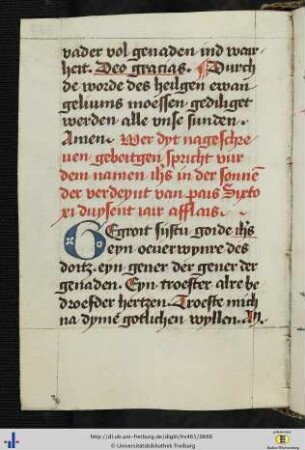 vader vol genaden ind wair
heit. Deo gracias. Durch
de worde des heilgen ewan
geliums moessen gediliget
werden alle vnse sunden.
Amen. Wer dyt nageschre
uen gebeitgen spricht vur
dem namen ihs in der sonnen
der verdeynt van pais Sixto
xi dusent iair afflais.
Gegroit sijstu goide ihs
eyn oeuerwynre des
doitz. eyn gener der gener der
genaden. Eyn troester alre be
droefder hertzen. Troeste mich
na dyme gotlichen wyllen. Am.
http://dl.ub.uni-freiburg.de/diglit/hs483/0088
© Universitätsbibliothek Freiburg